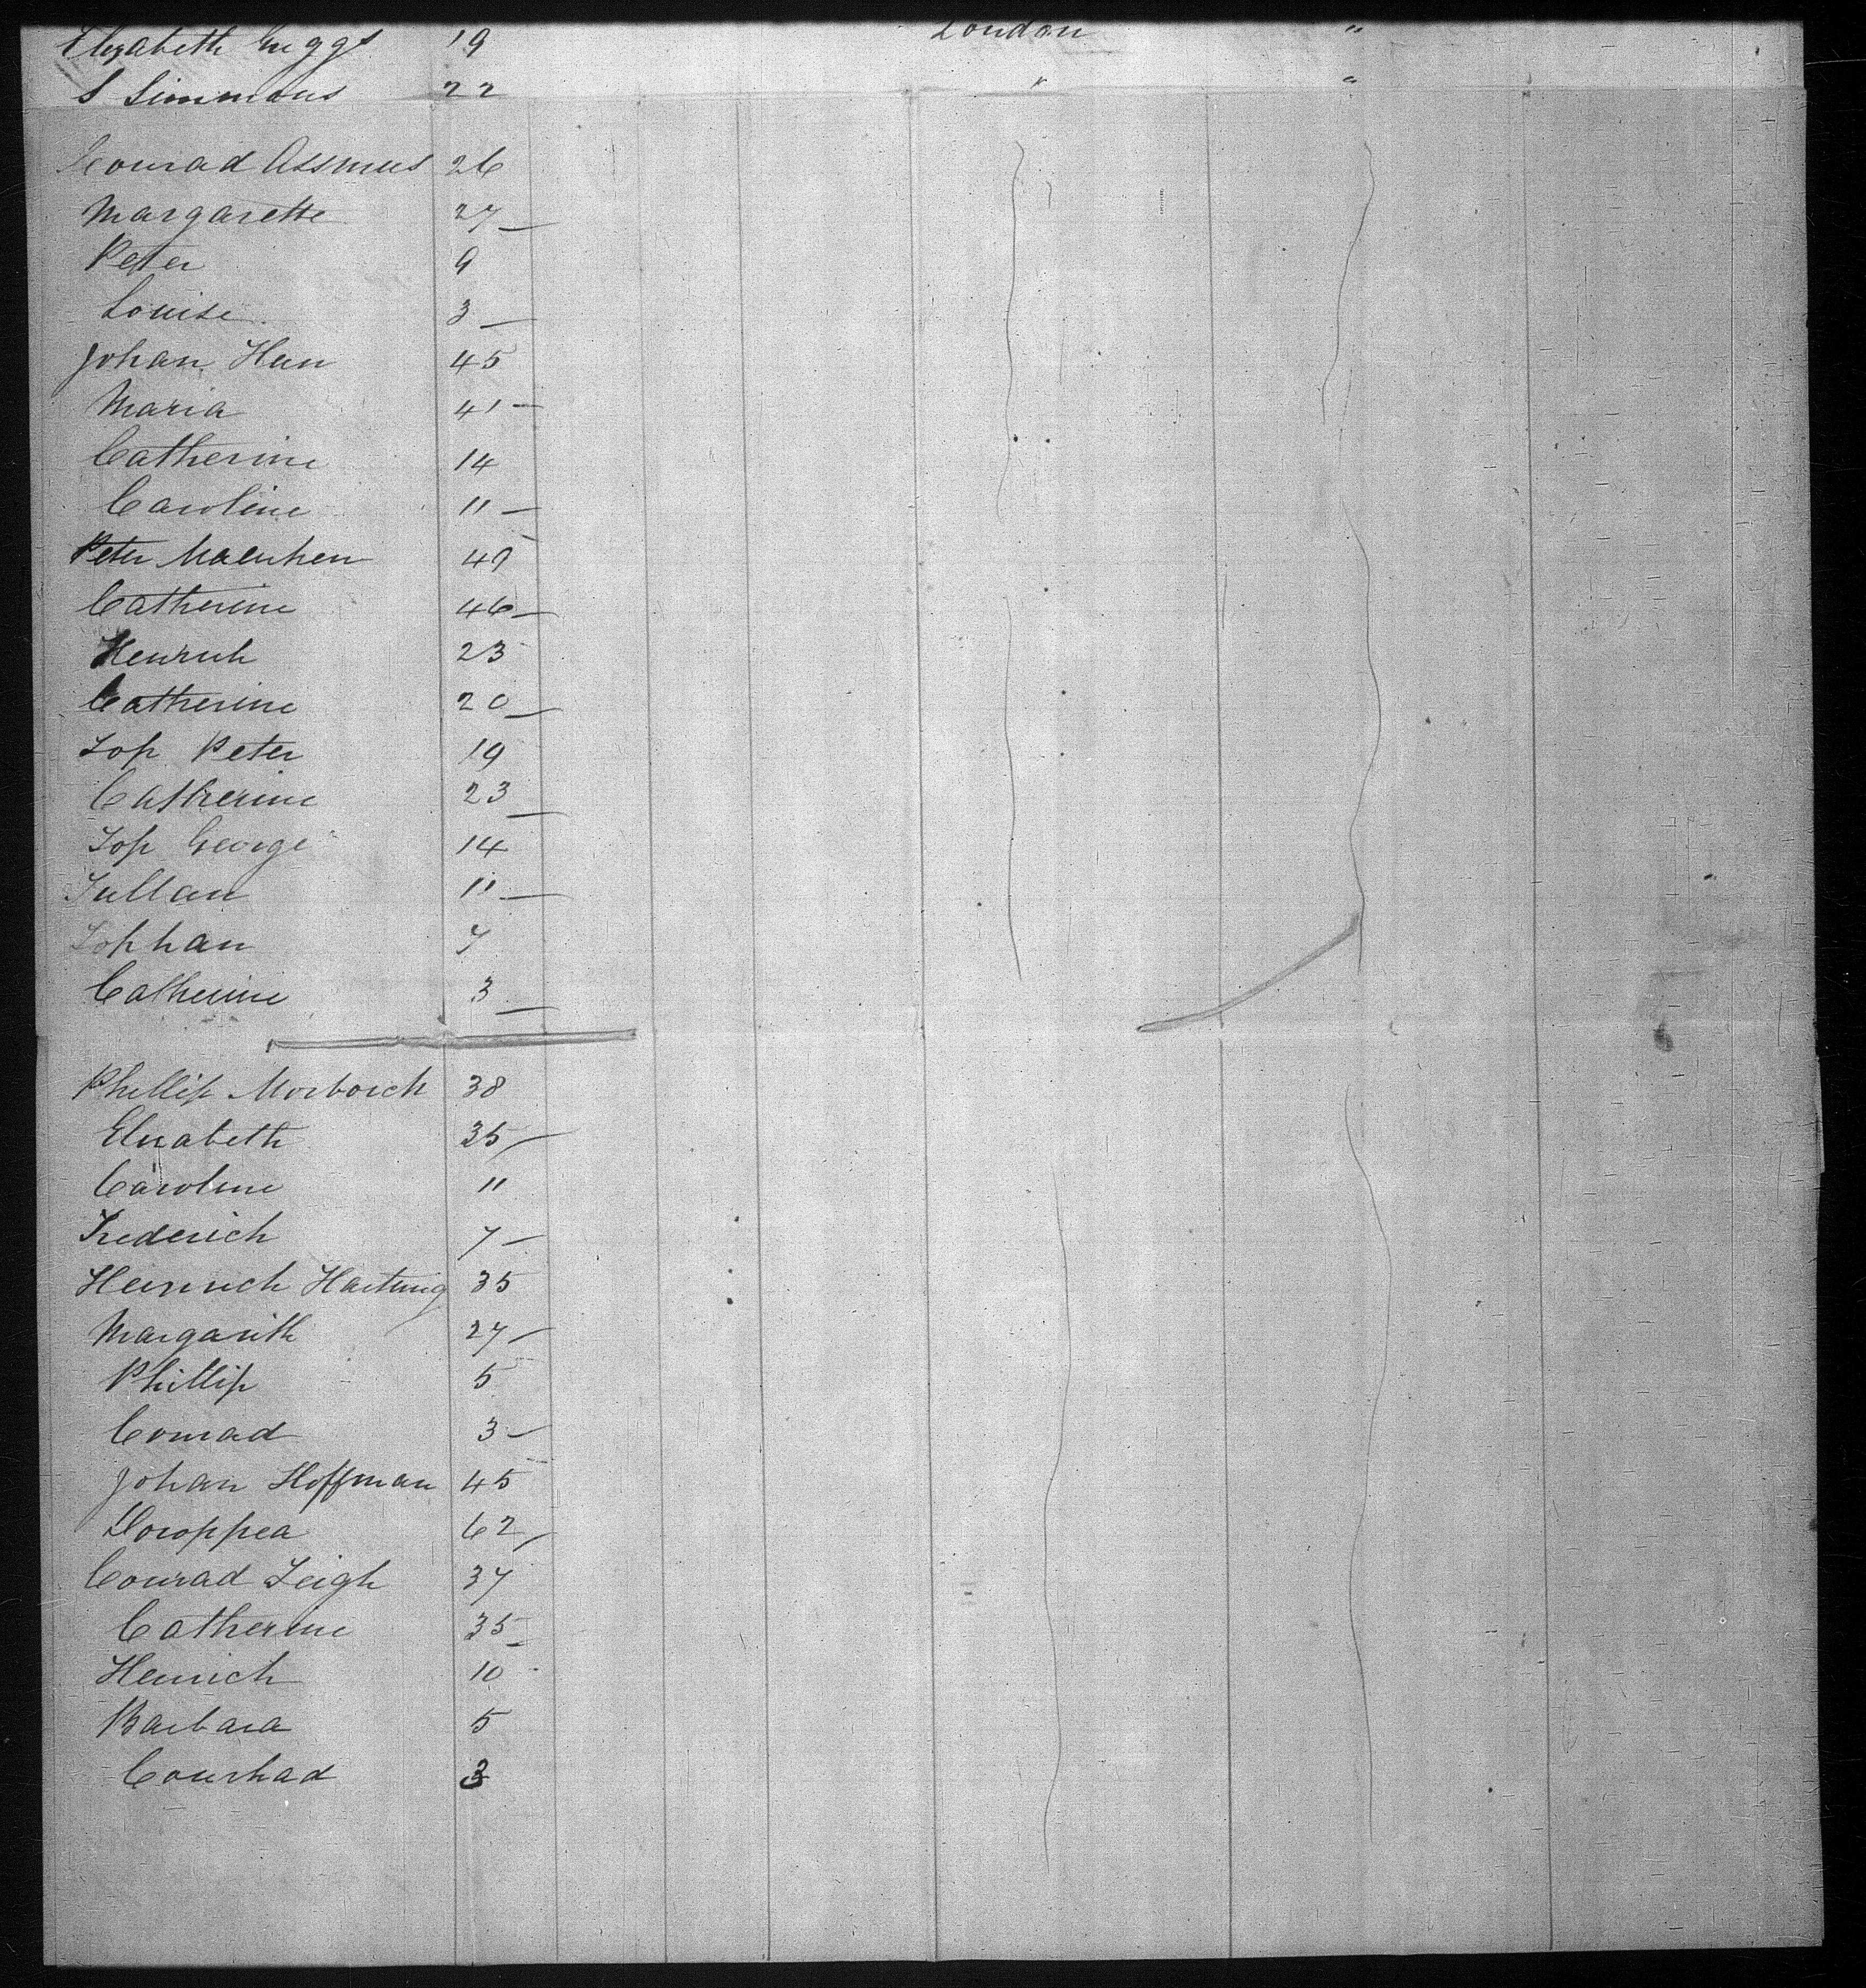 Elizabeth Griggs 19 London "
S Simmons 22 " "
Konrad Assmus 26
Margarette 27
Peter 9
Louise 3
Johan Hun 45
Maria 41
Catherine 14
Caroline 11
Peter 49
Catherine 46
Henrich 23
Catherine 20
Joh Peter 19
Catherine 23
Joh George 14
Julian 11
Johhan 7
Catherine 3
Phillip Morborch 38
Elizabeth 35
Caroline 11
Frederich 7
Heinrich Hartung 35
Margarith 27
Phillip 5
Conrad 3
Johan Hoffman 45
Doroppea 62
Conrad Leigh 37
Catherine 35
Heinrich 10
Barbara 5
Conrhad 3